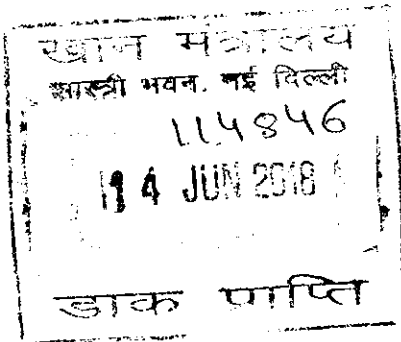 खान मंत्रालय
शास्त्री भवन, नई दिल्ली
114846
14 JUN 2018
डाक प्राप्ति